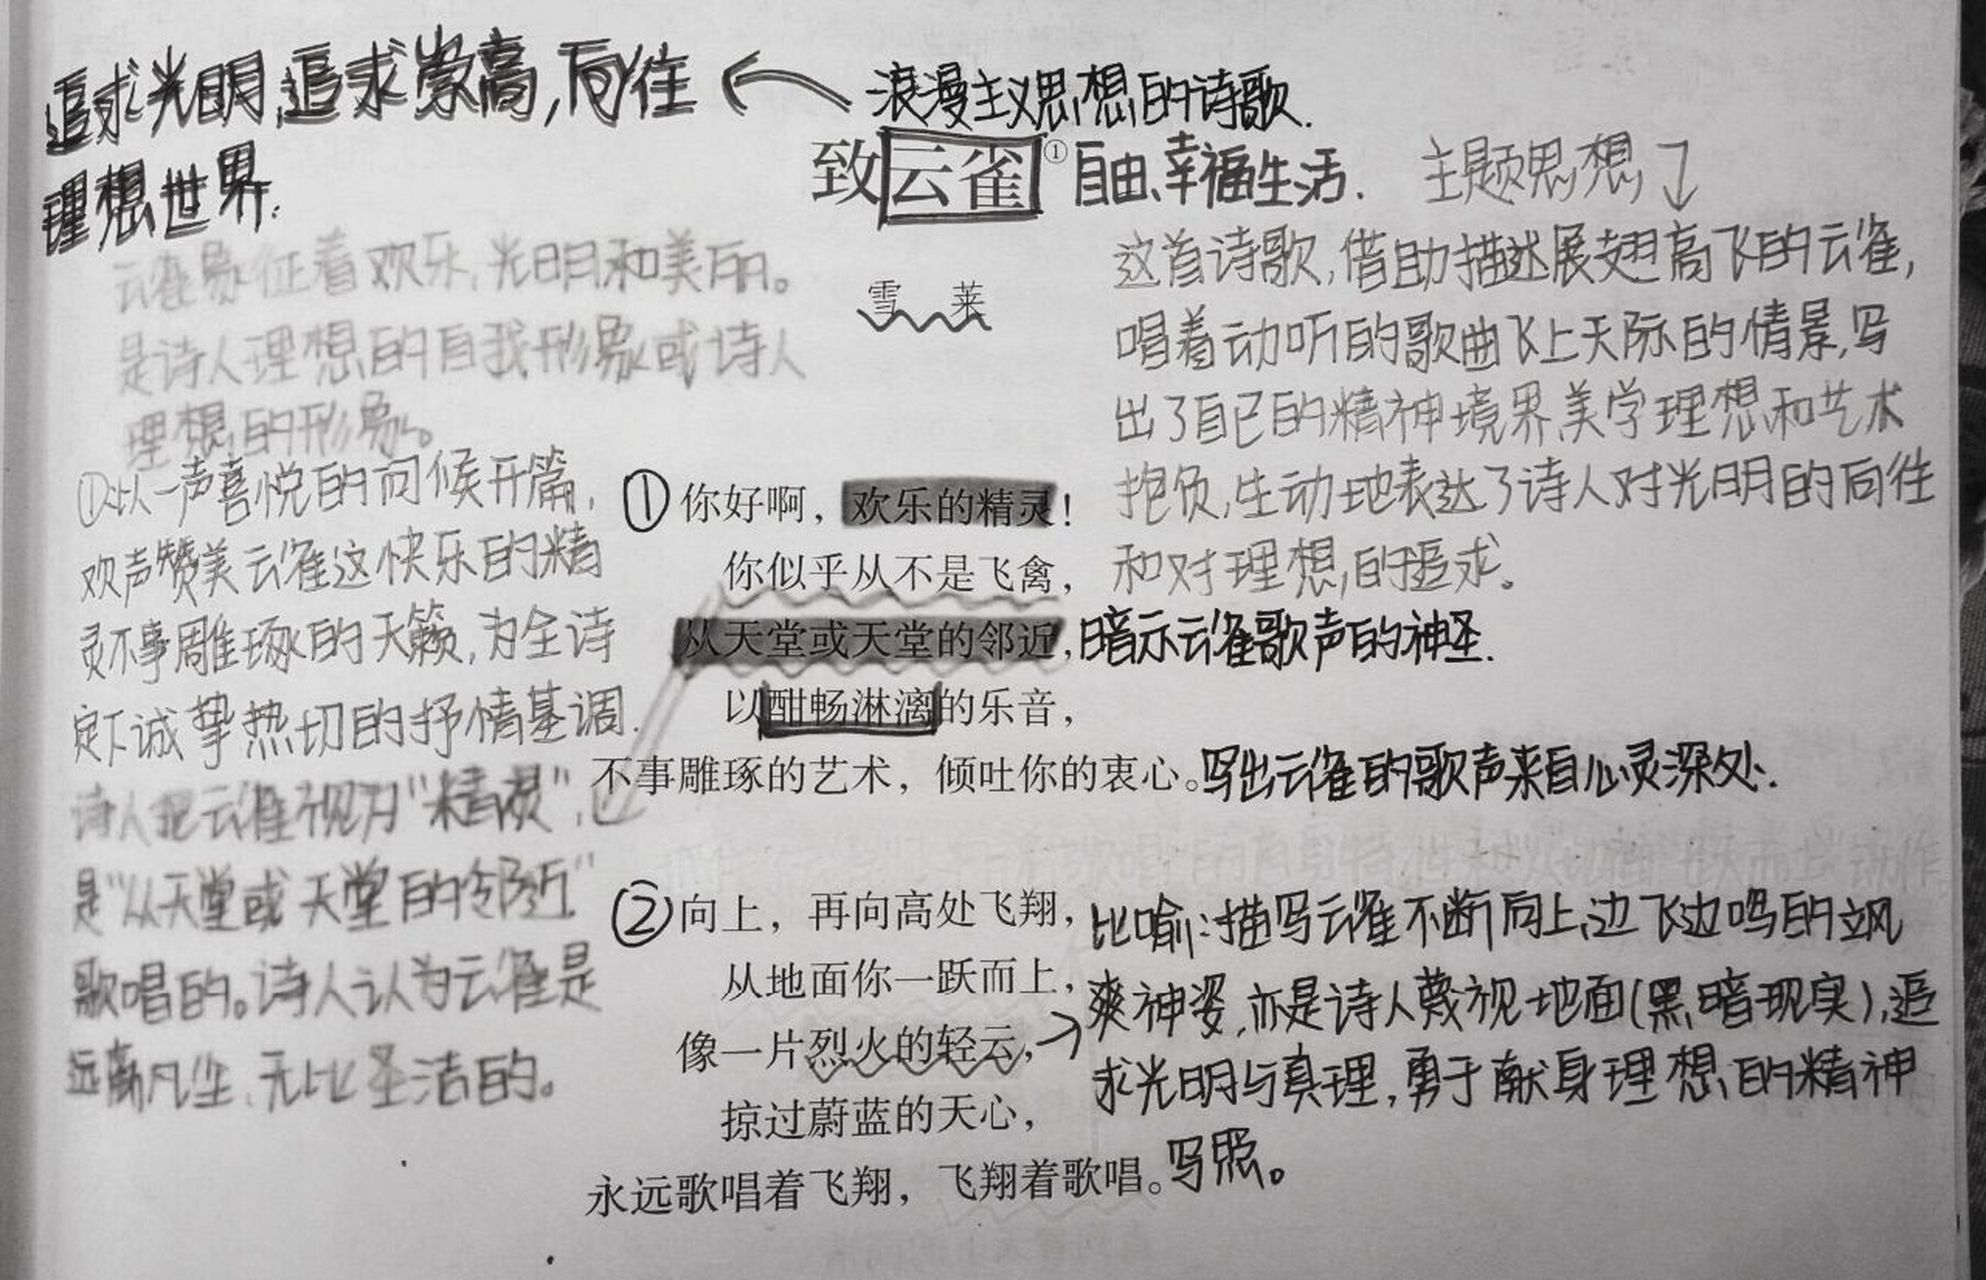 追求光明,追求崇高,向往
理想世界.
浪漫主义思想的诗歌.
致云雀① 自由、幸福生活.
雪 莱
主题思想
这首诗歌,借助描述展翅高飞的云雀,
唱着动听的歌曲飞上天际的情景,写
出了自己的精神境界,美学理想和艺术
抱负,生动地表达了诗人对光明的向往
和对理想的追求。
云雀象征着欢乐,光明和美丽。
是诗人理想的自我形象或诗人
理想的形象。
①以一声喜悦的问候开篇,
欢声赞美云雀这快乐的精
灵不事雕琢的天籁,为全诗
定下诚挚热切的抒情基调.
诗人把云雀视为“精灵”,
是“从天堂或天堂的邻近”
歌唱的。诗人认为云雀是
远离凡尘、无比圣洁的。
①你好啊，欢乐的精灵！
你似乎从不是飞禽，
从天堂或天堂的邻近，暗示云雀歌声的神圣.
以酣畅淋漓的乐音，
不事雕琢的艺术，倾吐你的衷心。写出云雀的歌声来自心灵深处.
②向上，再向高处飞翔，
从地面你一跃而上，
像一片烈火的轻云，
掠过蔚蓝的天心，
永远歌唱着飞翔，飞翔着歌唱。
比喻:描写云雀不断向上,边飞边鸣的飒
爽神姿,亦是诗人蔑视地面(黑暗现实),追
求光明与真理,勇于献身理想的精神
写照。